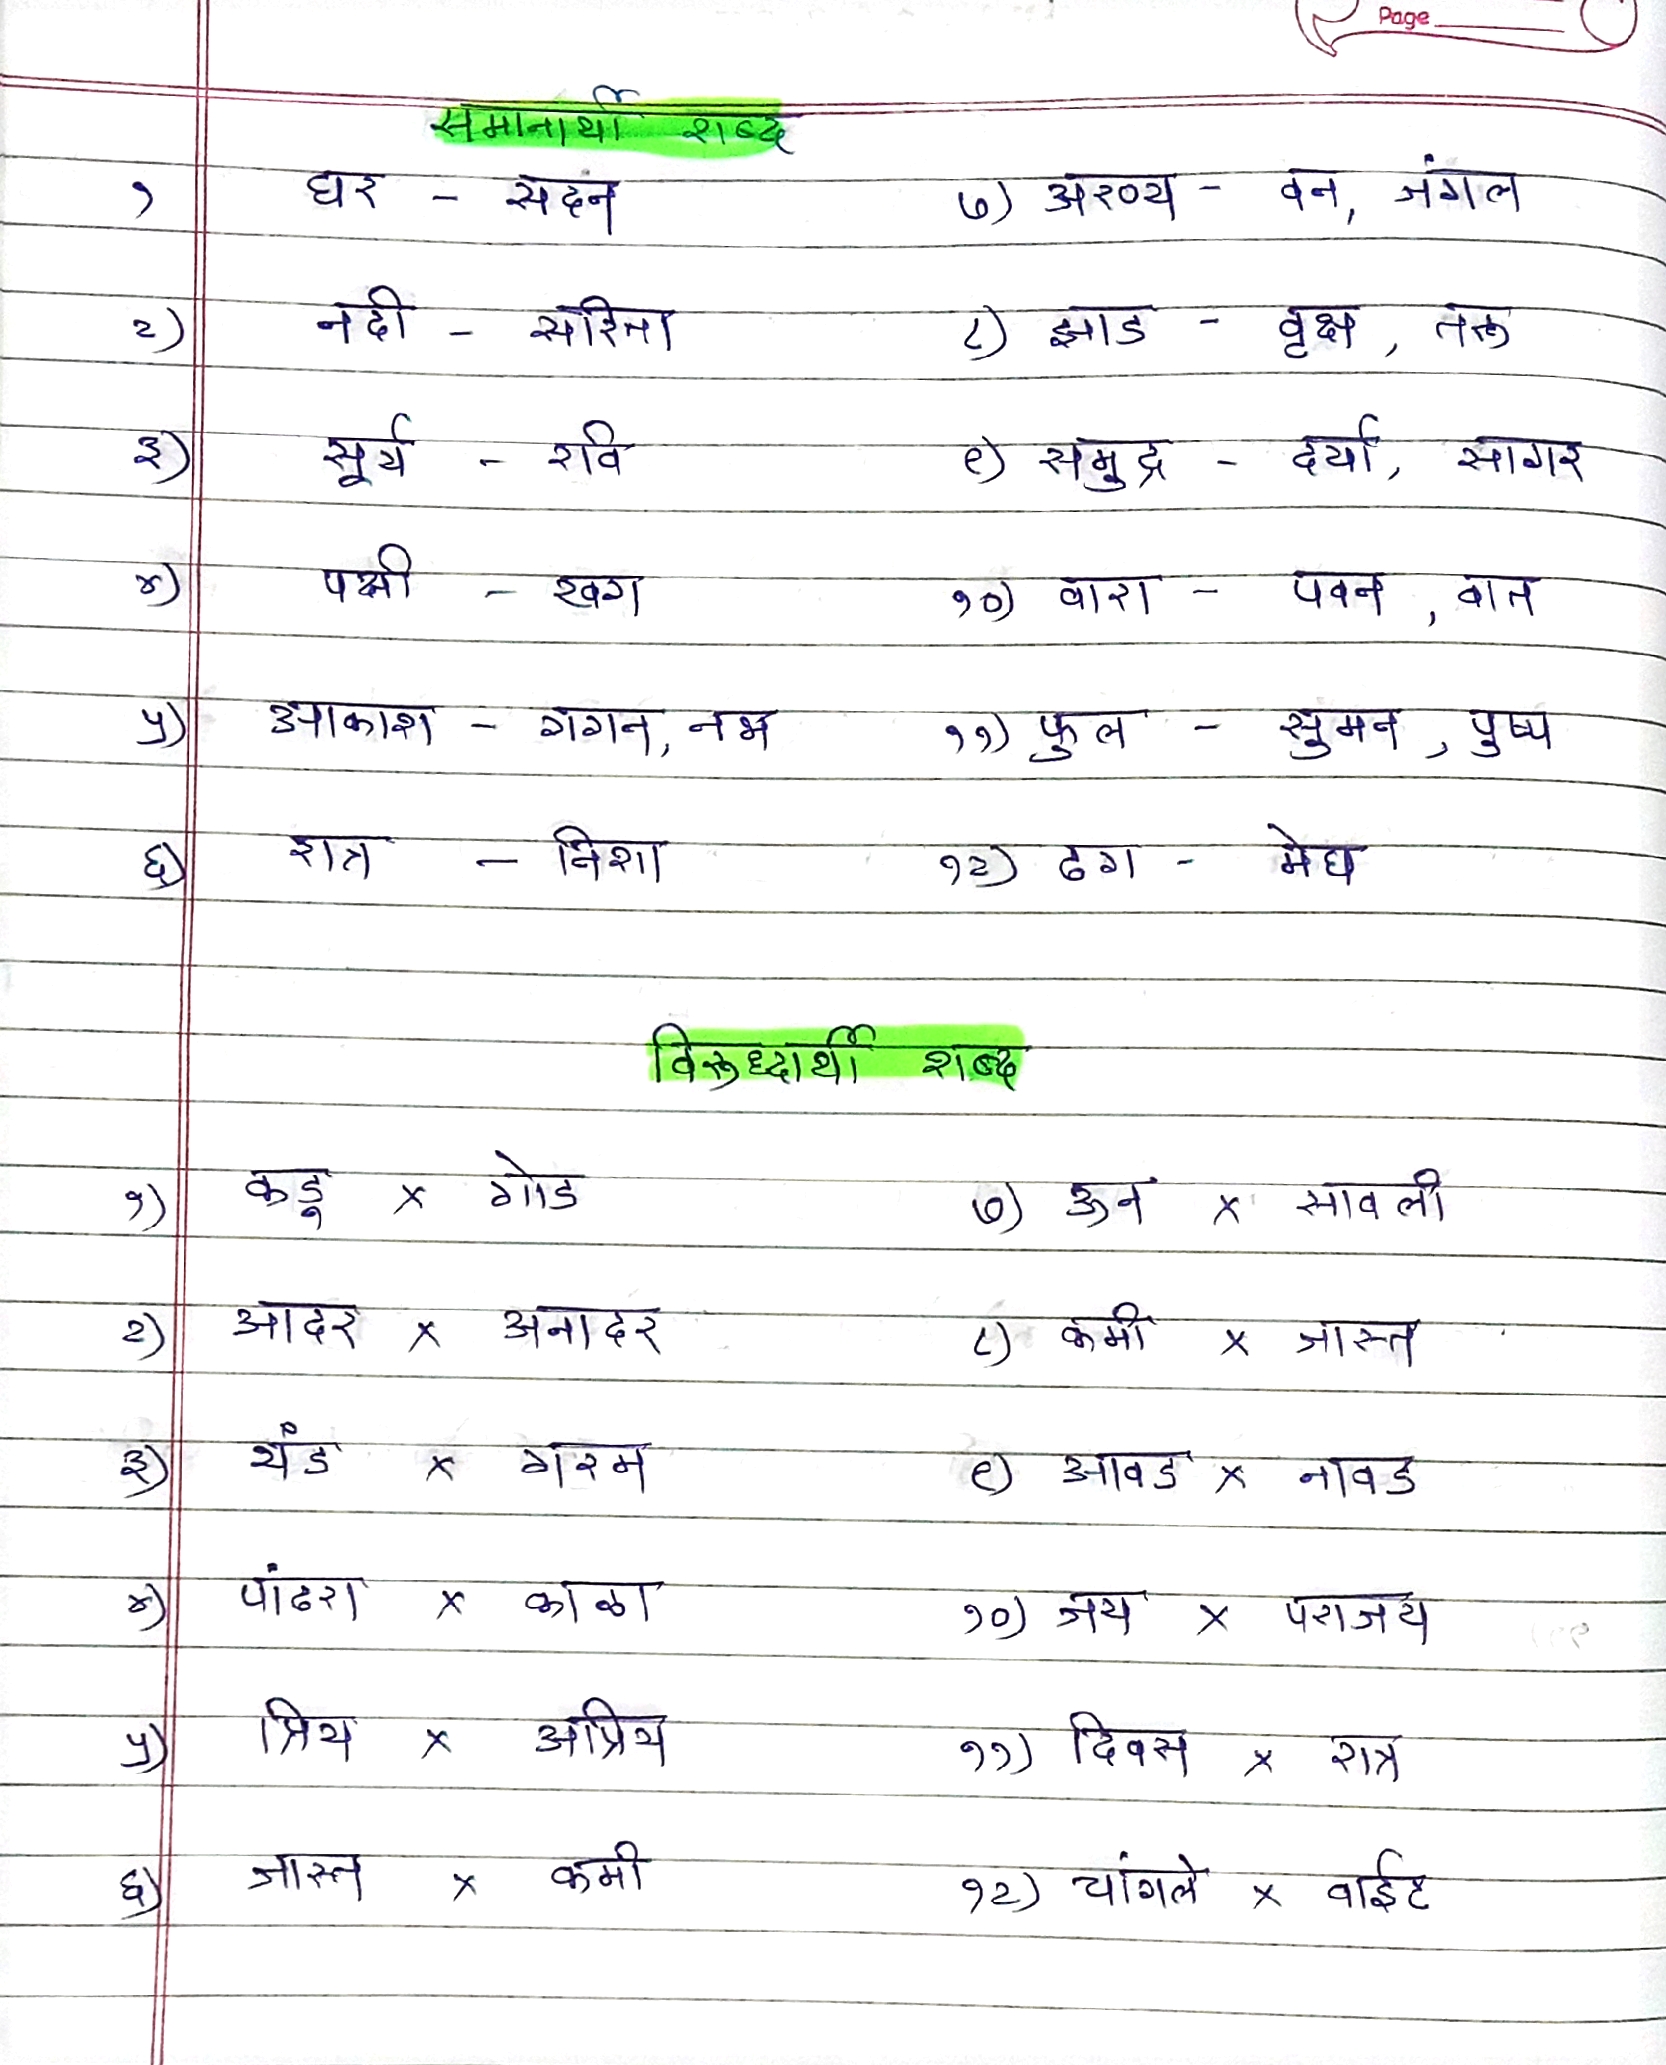 Page
समानार्थी शब्द
१ घर - सदन
७) अरण्य - वन, जंगल
२) नदी - सरिता
८) झाड - वृक्ष, तरू
३) सूर्य - रवि
९) समुद्र - दर्या, सागर
४) पक्षी - खग
१०) वारा - पवन, वात
५) आकाश - गगन, नभ
११) फुल - सुमन, पुष्प
६) रात्र - निशा
१२) ढग - मेघ
विरूध्दार्थी शब्द
१) कडू x गोड
७) ऊन x सावली
२) आदर x अनादर
८) कमी x जास्त
३) थंड x गरम
९) आवड x नावड
४) पांढरा x काळा
१०) जय x पराजय
५) प्रिय x अप्रिय
११) दिवस x रात्र
६) जास्त x कमी
१२) चांगले x वाईट